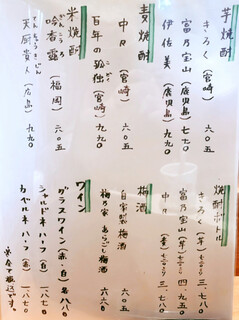 芋焼酎
きろく（宮崎）六〇五
富乃宝山（鹿児島）七七〇
伊佐美（鹿児島）九九〇
麦焼酎
中々（宮崎）六〇五
百年の孤独（宮崎）九九〇
米焼酎
吟香露（福岡）六〇五
天厨貴人（広島）九九〇
焼酎ボトル
きろく（芋）三、七八〇
富乃宝山（芋）四、九五〇
中々（麦）三、七八〇
梅酒
自家製梅酒 六〇五
梅乃宿 あらごし梅酒 六六〇
ワイン
グラスワイン（赤・白）各八八〇
シャルドネハーフ（白）一、八七〇
カベルネハーフ（赤）一、八七〇